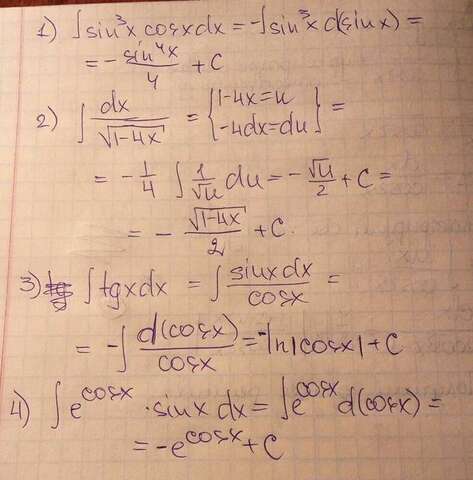 1) ∫sin³x cosxdx = -∫sin³x d(sinx) =
= - sin⁴x/4 + C
2) ∫ dx/√(1-4x) = {1-4x=u -4dx=du} =
= - 1/4 ∫ 1/√u du = - √u/2 + C =
= - √(1-4x)/2 + C.
3) ∫tgxdx = ∫ sinxdx/cosx =
= -∫ d(cosx)/cosx = -ln|cosx| + C
4) ∫e^cosx · sinx dx = ∫e^cosx d(cosx) =
= -e^cosx + C